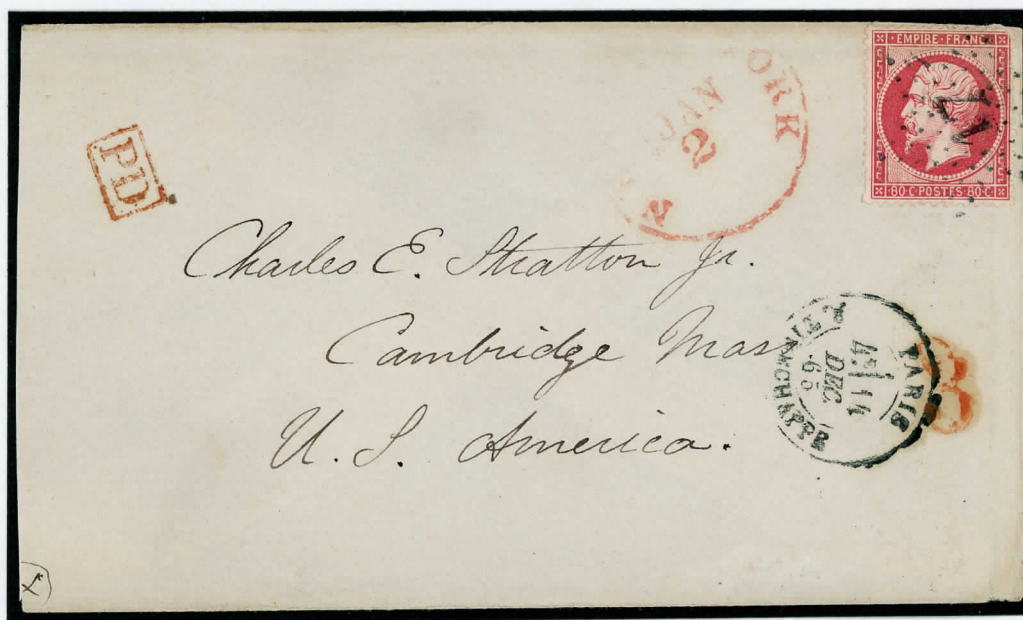 EMPIRE FRANC
80 C POSTES 80 C
PD
N YORK
JAN
2
Charles E. Stratton Jr.
Cambridge Mass
U. S. America.
PARIS
14
DEC.
65